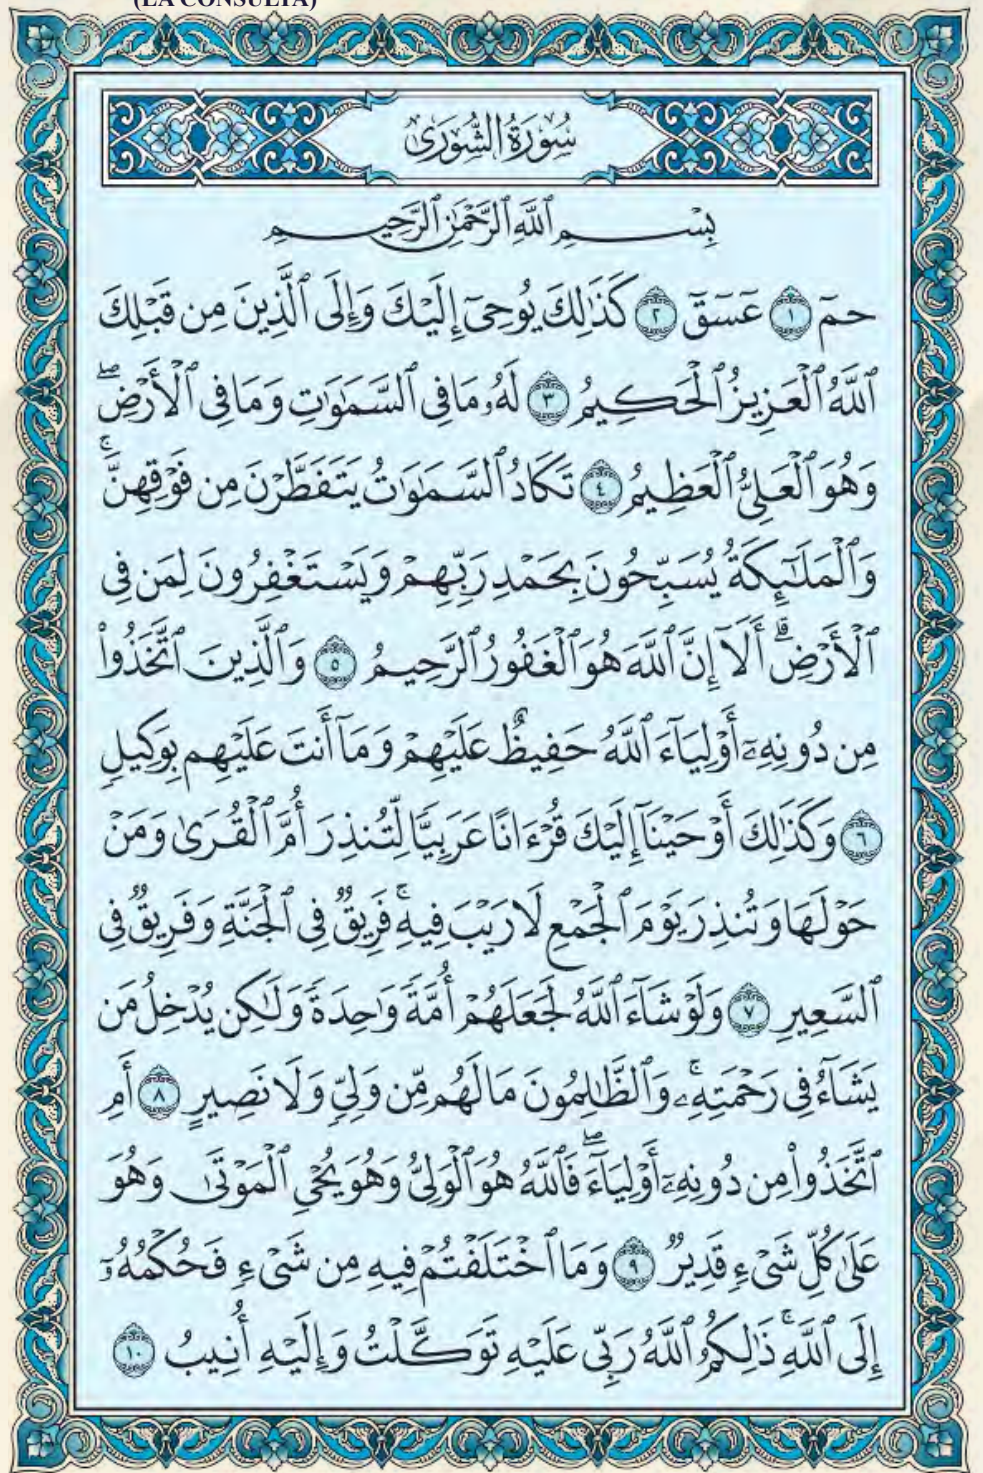 (LA CONSULTA)
سُورَةُ الشُّورَىٰ
بِسْمِ ٱللَّهِ ٱلرَّحْمَٰنِ ٱلرَّحِيمِ
حمٓ ١ عٓسٓقٓ ٢ كَذَٰلِكَ يُوحِىٓ إِلَيْكَ وَإِلَى ٱلَّذِينَ مِن قَبْلِكَ
ٱللَّهُ ٱلْعَزِيزُ ٱلْحَكِيمُ ٣ لَهُۥ مَا فِى ٱلسَّمَٰوَٰتِ وَمَا فِى ٱلْأَرْضِ ۖ
وَهُوَ ٱلْعَلِىُّ ٱلْعَظِيمُ ٤ تَكَادُ ٱلسَّمَٰوَٰتُ يَتَفَطَّرْنَ مِن فَوْقِهِنَّ ۚ
وَٱلْمَلَٰٓئِكَةُ يُسَبِّحُونَ بِحَمْدِ رَبِّهِمْ وَيَسْتَغْفِرُونَ لِمَن فِى
ٱلْأَرْضِ ۗ أَلَآ إِنَّ ٱللَّهَ هُوَ ٱلْغَفُورُ ٱلرَّحِيمُ ٥ وَٱلَّذِينَ ٱتَّخَذُوا۟
مِن دُونِهِۦٓ أَوْلِيَآءَ ٱللَّهُ حَفِيظٌ عَلَيْهِمْ وَمَآ أَنتَ عَلَيْهِم بِوَكِيلٍ
٦ وَكَذَٰلِكَ أَوْحَيْنَآ إِلَيْكَ قُرْءَانًا عَرَبِيًّا لِّتُنذِرَ أُمَّ ٱلْقُرَىٰ وَمَنْ
حَوْلَهَا وَتُنذِرَ يَوْمَ ٱلْجَمْعِ لَا رَيْبَ فِيهِ ۚ فَرِيقٌ فِى ٱلْجَنَّةِ وَفَرِيقٌ فِى
ٱلسَّعِيرِ ٧ وَلَوْ شَآءَ ٱللَّهُ لَجَعَلَهُمْ أُمَّةً وَٰحِدَةً وَلَٰكِن يُدْخِلُ مَن
يَشَآءُ فِى رَحْمَتِهِۦ ۚ وَٱلظَّٰلِمُونَ مَا لَهُم مِّن وَلِىٍّ وَلَا نَصِيرٍ ٨ أَمِ
ٱتَّخَذُوا۟ مِن دُونِهِۦٓ أَوْلِيَآءَ ۖ فَٱللَّهُ هُوَ ٱلْوَلِىُّ وَهُوَ يُحْىِ ٱلْمَوْتَىٰ وَهُوَ
عَلَىٰ كُلِّ شَىْءٍ قَدِيرٌ ٩ وَمَا ٱخْتَلَفْتُمْ فِيهِ مِن شَىْءٍ فَحُكْمُهُۥٓ
إِلَى ٱللَّهِ ۚ ذَٰلِكُمُ ٱللَّهُ رَبِّى عَلَيْهِ تَوَكَّلْتُ وَإِلَيْهِ أُنِيبُ ١٠